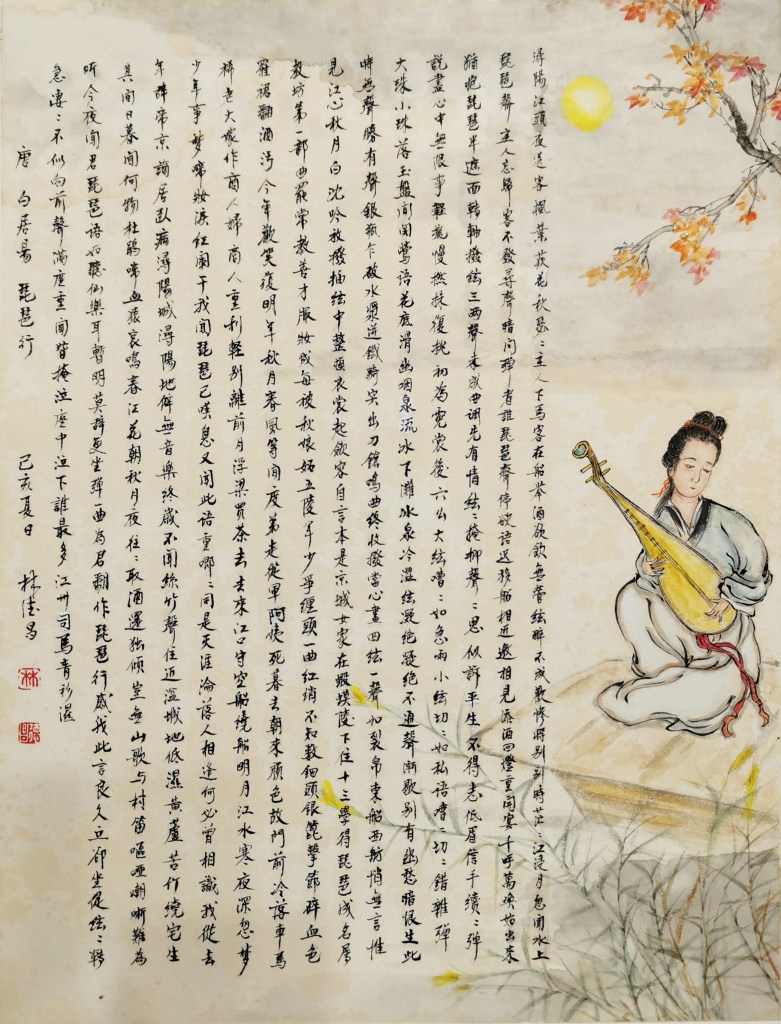 潯陽江頭夜送客楓葉荻花秋瑟〻主人下馬客在船舉酒欲飲無管絃醉不成歡慘將別別時茫〻江浸月忽聞水上
琵琶聲主人忘歸客不發尋聲暗問彈者誰琵琶聲停欲語遲移船相近邀相見添酒回燈重開宴千呼萬喚始出來
猶抱琵琶半遮面轉軸撥絃三兩聲未成曲調先有情絃〻掩抑聲〻思似訴平生不得志低眉信手續〻彈
說盡心中無限事輕攏慢撚抹復挑初為霓裳後六么大絃嘈〻如急雨小絃切〻如私語嘈〻切〻錯雜彈
大珠小珠落玉盤間關鶯語花底滑幽咽泉流冰下灘冰泉冷澀絃凝絕凝絕不通聲漸歇別有幽愁暗恨生此
時無聲勝有聲銀瓶乍破水漿迸鐵騎突出刀鎗鳴曲終收撥當心畫四絃一聲如裂帛東船西舫悄無言惟
見江心秋月白沈吟放撥插絃中整頓衣裳起斂容自言本是京城女家在蝦蟆陵下住十三學得琵琶成名屬
教坊第一部曲罷常教善才服妝成每被秋娘妬五陵年少爭纏頭一曲紅綃不知數鈿頭銀篦擊節碎血色
羅裙翻酒污今年歡笑復明年秋月春風等閒度弟走從軍阿姨死暮去朝來顏色故門前冷落車馬
稀老大嫁作商人婦商人重利輕別離前月浮梁買茶去去來江口守空船繞船明月江水寒夜深忽夢
少年事夢啼妝淚紅闌干我聞琵琶已嘆息又聞此語重唧〻同是天涯淪落人相逢何必曾相識我從去
年辭帝京謫居臥病潯陽城潯陽地僻無音樂終歲不聞絲竹聲住近湓城地低濕黃蘆苦竹繞宅生
其間旦暮聞何物杜鵑啼血猿哀鳴春江花朝秋月夜往〻取酒還獨傾豈無山歌與村笛嘔啞嘲哳難為
听今夜聞君琵琶語如聽仙樂耳暫明莫辭更坐彈一曲為君翻作琵琶行感我此言良久立卻坐促絃〻轉
急淒〻不似向前聲滿座重聞皆掩泣座中泣下誰最多江州司馬青衫濕
唐 白居易 琵琶行 己亥夏日 林德昌
林
德昌